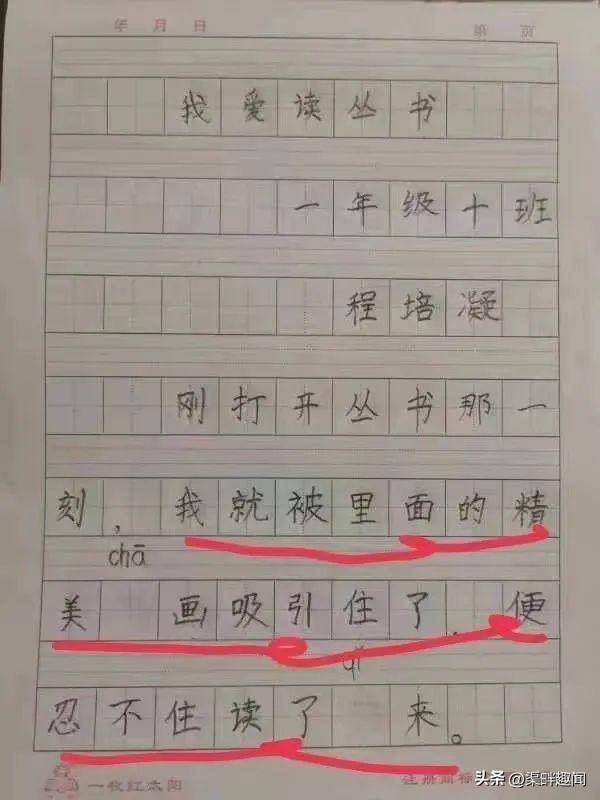 年 月 日 第 页
我爱读丛书
一年级十班
程培凝
刚打开丛书那一
刻,我就被里面的精
chā
美 画吸引住了.便
qǐ
忍不住读了 来。
一枚红太阳 注册商标
头条 @渠畔趣闻